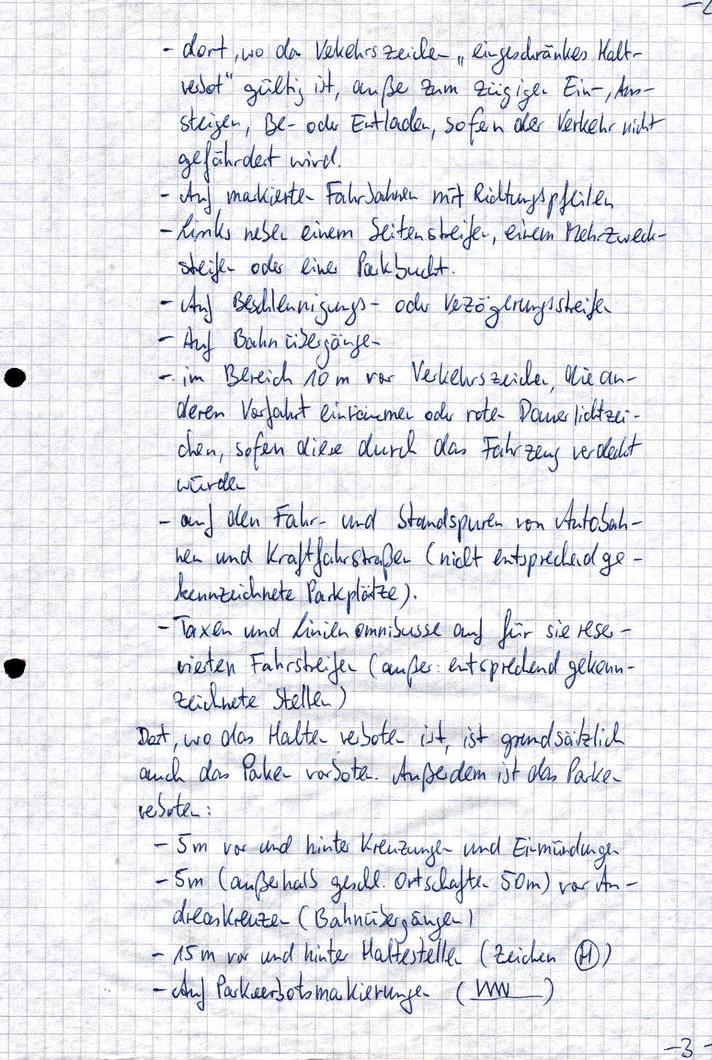 - dort, wo das Verkehrszeichen „eingeschränktes Halt-
verbot" gültig ist, außer zum zügigen Ein-, Aus-
steigen, Be- oder Entladen, sofern der Verkehr nicht
gefährdert wird.
- Auf markierten Fahrbahnen mit Richtungspfeilen
- Links neben einem Seitenstreifen, einem Mehrzweck-
streifen oder einer Parkbucht.
- Auf Beschleunigungs- oder Verzögerungsstreifen
- Auf Bahnübergängen
- im Bereich 10 m vor Verkehrszeichen, die an-
deren Vorfahrt einräumen oder roten Dauerlichtzei-
chen, sofern diese durch das Fahrzeug verdeckt
würden
- auf den Fahr- und Standspuren von Autobah-
nen und Kraftfahrstraßen (nicht entsprechend ge-
kennzeichnete Parkplätze).
- Taxen und Linienomnibusse auf für sie reser-
vierten Fahrstreifen (außer: entsprechend gekenn-
zeichnete Stellen)
Dort, wo das Halten verboten ist, ist grundsätzlich
auch das Parken verboten. Außerdem ist das Parken
verboten:
- 5m vor und hinter Kreuzungen und Einmündungen
- 5m (außerhalb geschl. Ortschaften 50m) vor An-
dreaskreuzen (Bahnübergängen)
- 15m vor und hinter Haltestellen (Zeichen H)
- Auf Parkverbotsmarkierungen ( )
-3-